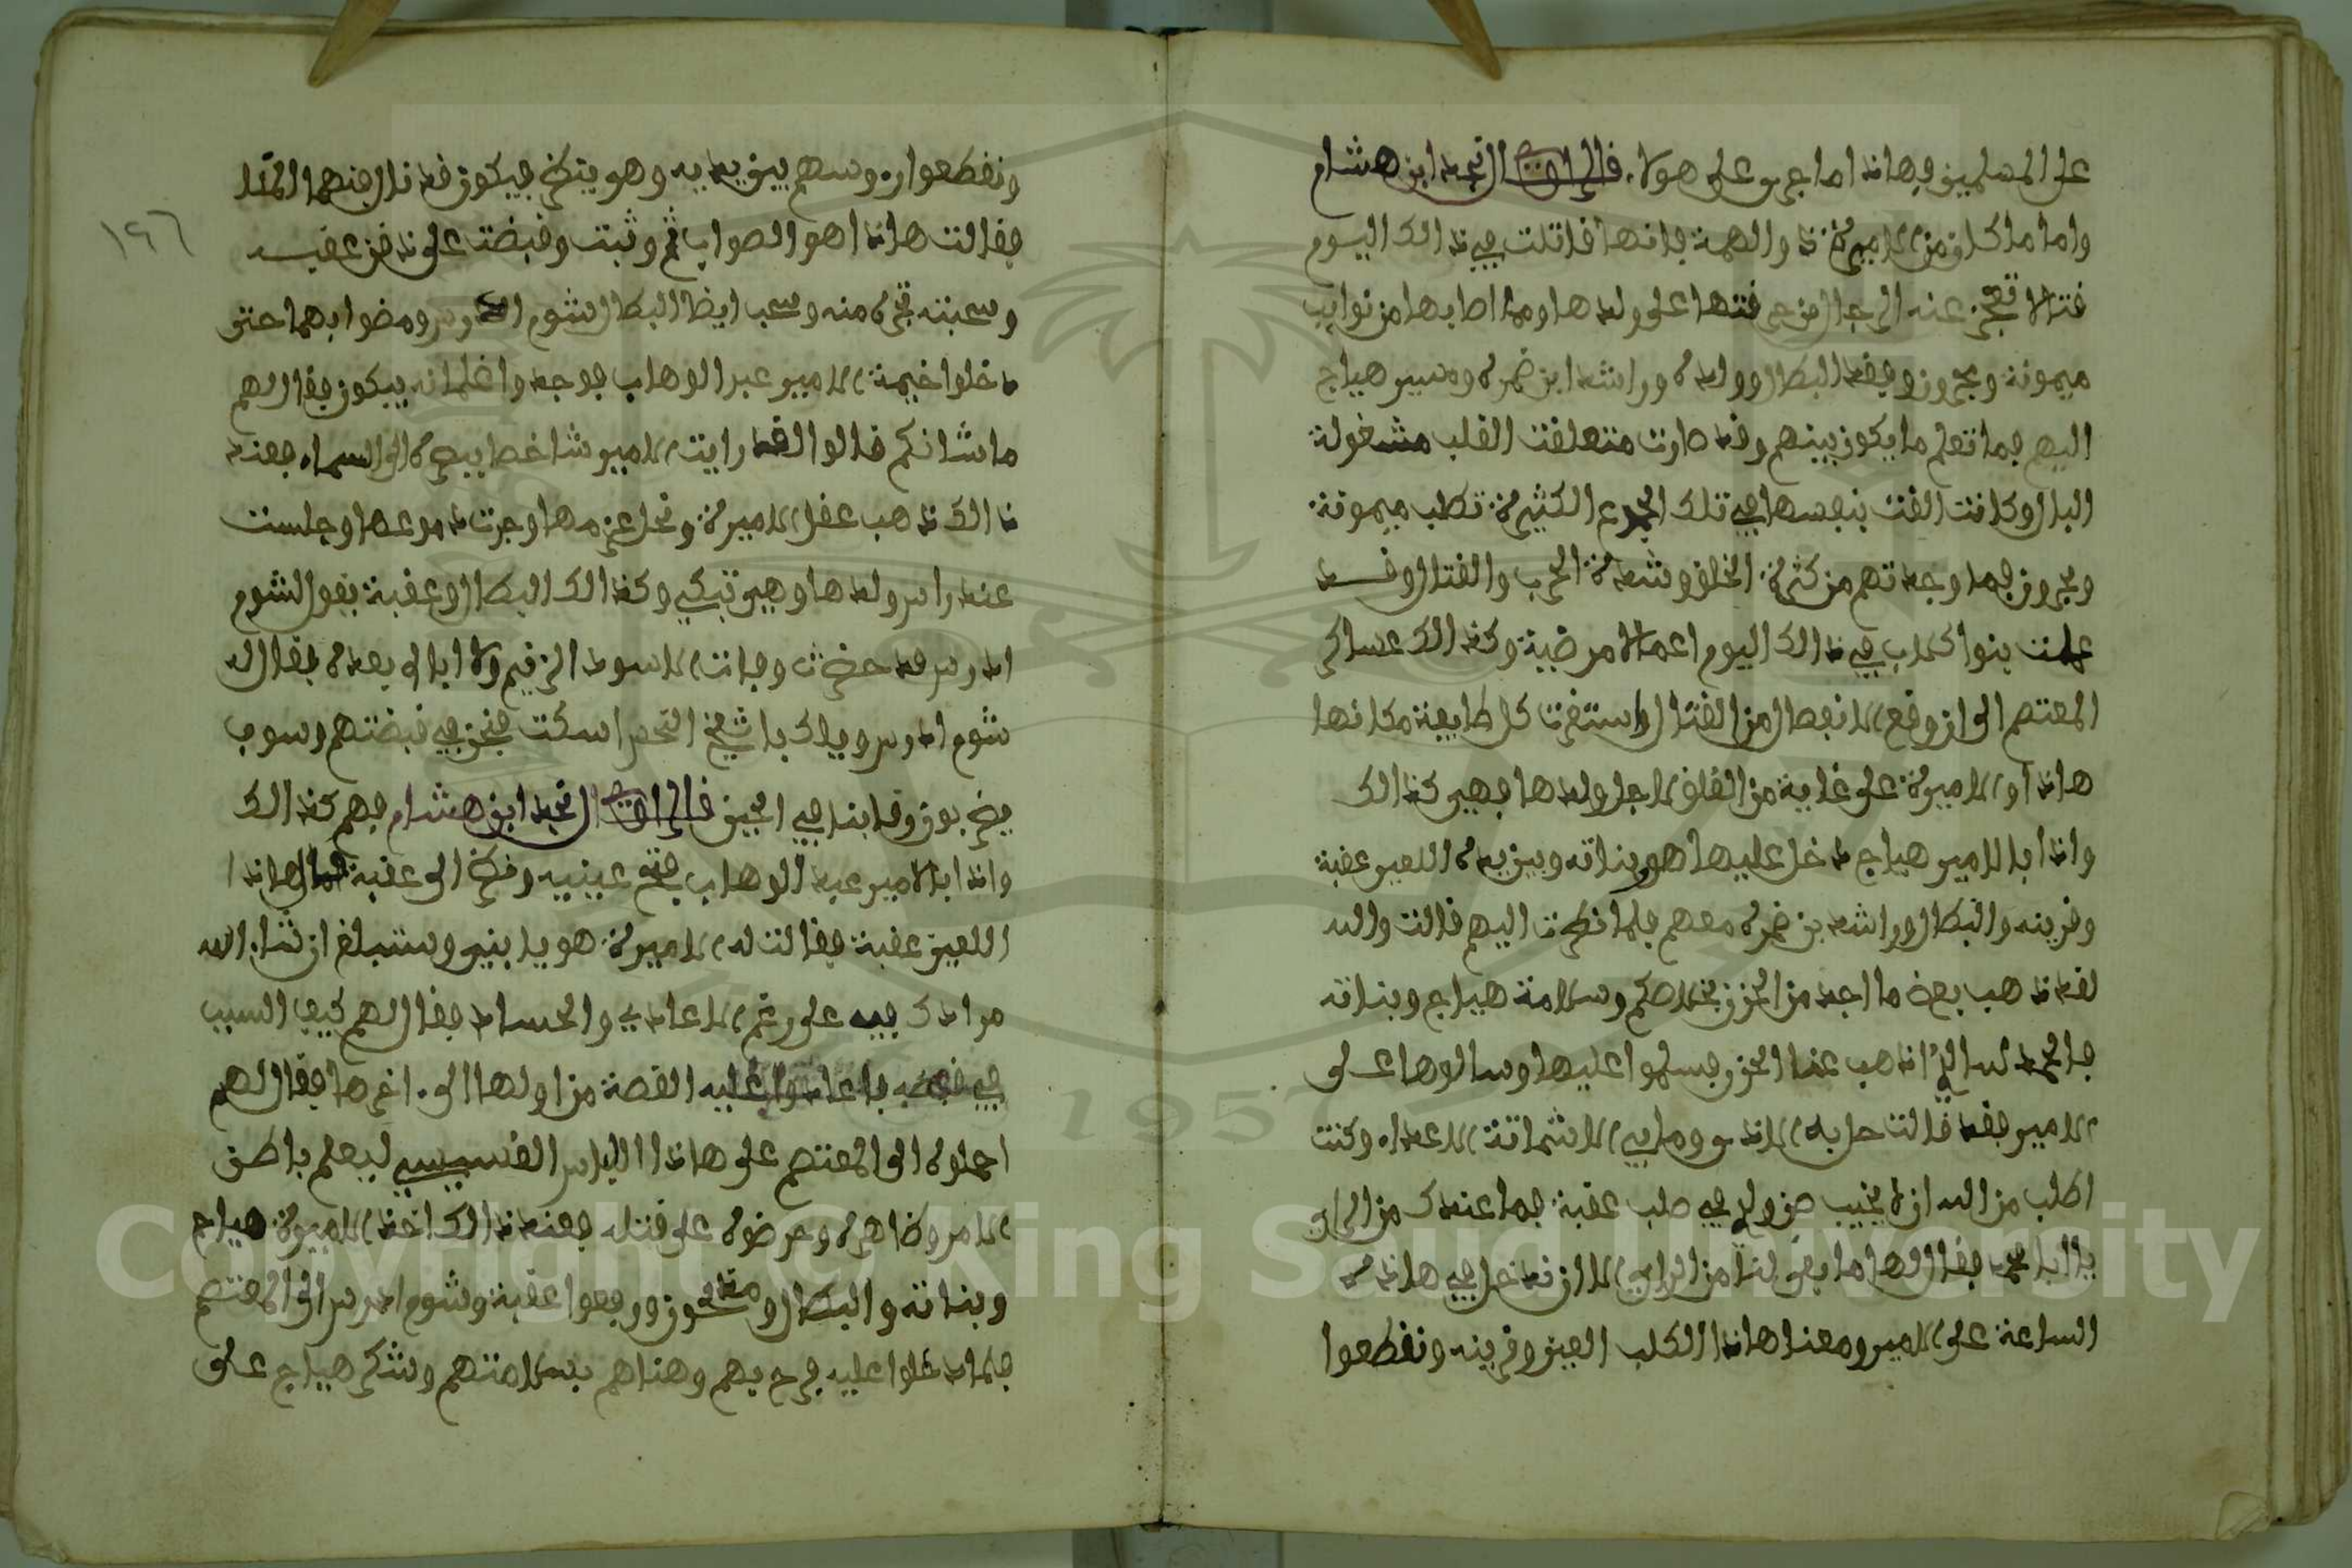 على المسلمين فهاذا ما جرى على هولاء قال الراوي نجد ابن هشام
واما ما كان من الاميرة ذو الهمة فانها قاتلت في ذالك اليوم
قتالا تعجز عنه الرجال من حرقتها على ولدها ومما اصابها من نوايب
ميمونة وبحرون وفقد البطال وولده وراشد ابن ضمرة ومسير هياج
اليهم فما تعلم ما يكون بينهم وقد صارت متعلقت القلب مشغولة
البال وكانت القت بنفسها في تلك الجموع الكثيرة تطلب ميمونة
وبحرون فما وجدتهم من كثرة الخلق وشدة الحرب والقتال وقد
عملت بنوا كلاب في ذالك اليوم اعمالا مرضية وكذالك عساكر
المعتصم الى ان وقع الانفصال من القتال واستقرت كل طايفة مكانها
هاذا والاميرة على غاية من القلق لاجل ولدها فهي كذالك
واذا بالامير هياج دخل عليها هو وبناته وبين يده اللعين عقبة
وقرينه والبطال وراشد بن ضمرة معهم فلما نظرت اليهم قالت والله
لقد ذهب بعض ما اجد من الحزن بخلاصكم وسلامة هياج وبناته
فالحمد لله الذي اذهب عنا الحزن فسلموا عليها وسالوها على
الامير فقد قالت حل به الاذى وما بي الا شماتة الاعداء وكنت
اطلب من الله ان لا يخيب ظن ولدي في صلب عقبة فما عندك من الراي
يا ابا محمد فقال لها ما بقى لنا من الراي الا ان ندخل في هاذه
الساعة على الامير ومعنا هاذا الكلب العين وقرينه ونقطعوا
ونقطعوا رءوسهم بين يديه وهو ينظر فيكون قد نال منهما المنا
فقالت هاذا هو الصواب ثم وثبت وقبضت على ذقن عقبه
وسحبته تجره منه وسحب ايضا البطال شوم ادرس ومضوا بهما حتى
دخلوا خيمة الامير عبد الوهاب فوجدوا غلمانه يبكون فقال لهم
ما شانكم قالوا لقد رايت الامير شاخصا ببصره الى السماء فعند
ذالك ذهب عقل الاميرة ونحل عزمها وجرت دموعها وجلست
عند راس ولدها وهي تبكي وكذالك البطال وعقبة يقول لشوم
ادرس قد حضرت وفات الاسود الزنيم ولا ابالي بعده فقال له
شوم ادرس ويلك يا شيخ النحس اسكت فنحن في قبضتهم وسوف
يضربون رقابنا في الحين قال الراوي نجد ابن هشام فهم كذالك
واذا بالامير عبد الوهاب فتح عينيه ونظر الى عقبة فقال هاذا
اللعين عقبة فقالت له الاميرة هو يا بني وستبلغ ان شاء الله
مرادك فيه على رغم الاعادي والحساد فقال لهم كيف السبب
في قبضه فاعادوا عليه القصة من اولها الى ءاخرها فقال لهم
احملوه الى المعتصم على هاذا اللباس القسيسي ليعلم باطن
الامر وظاهره وحرضوه على قتله فعند ذالك اخذ الاميرة هياج
وبناته والبطال ومقلحون ورفعوا عقبة وشوم ادرس الى المعتصم
فلما دخلوا عليه فرح بهم وهناهم بسلامتهم وشكر هياج على
١٩٦
Copyright © King Saud University
1957